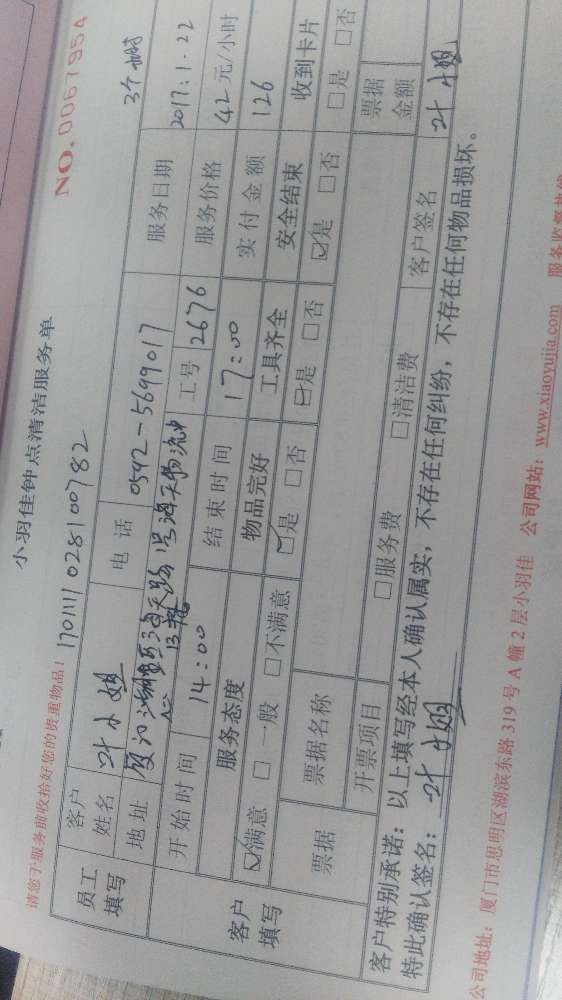 小羽佳钟点清洁服务单
NO.0067954
请您于服务前收拾好您的贵重物品!
1701111028100782
3个小时
员工填写
客户姓名 叶小姐 电话 0592-5699017 服务日期 2017.1.22
地址 厦门 海天路 号海天物流中心
工号 2676 服务价格 42元/小时
开始时间 14:00 结束时间 17:00 实付金额 126
客户填写
服务态度 物品完好 工具齐全 安全结束 收到卡片
☑满意 □一般 □不满意 ☑是 □否 ☑是 □否 ☑是 □否 □是 □否
票据 票据名称 票据金额
开票项目 □服务费 □清洁费 客户签名 叶小姐
客户特别承诺:以上填写经本人确认属实,不存在任何纠纷,不存在任何物品损坏。
特此确认签名:叶小姐
公司地址:厦门市思明区湖滨东路319号A幢2层小羽佳 公司网站:www.xiaoyujia.com 服务监督热线